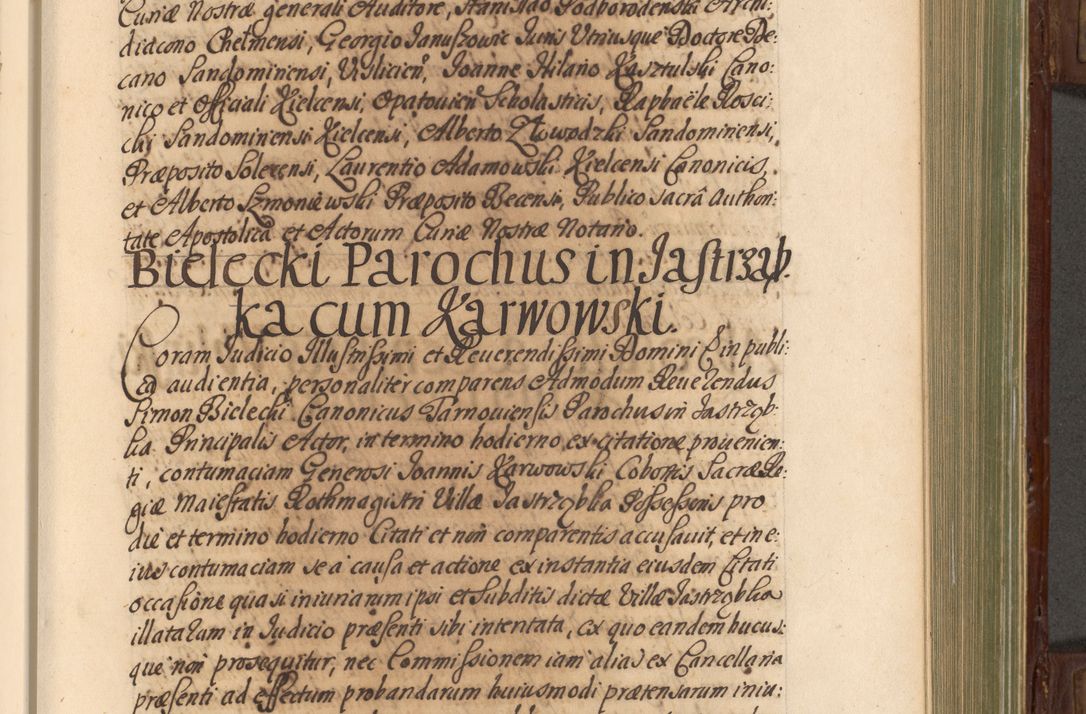 Curiæ Nostræ generali Auditore, Stanislao Podhorodenski Archi:
diacono Chelmensi, Georgio Januszowic Juris Utriusque Doctore De:
cano Sandomiriensi, Vislicien, Joanne Hilario Kasztulski Cano:
nico et Officiali Kielcensi, Opatovien Scholasticis, Raphaële Rosci:
cki Sandomiriensi Kielcensi, Alberto Złowodzki Sandomiriensi,
Præposito Solecensi, Laurentio Adamowski Kielcensi Canonicis,
et Alberto Szmoniewski Præposito Becensi, Publico Sacrâ Authori:
tate Apostolica et Actorum Curiæ Nostræ Notario.
Bielecki Parochus in Jastrząb:
ka cum Karwowski.
Coram Judicio Illustrissimi et Reuerendissimi Domini in publi:
ca audientia, personaliter comparens Admodum Reuerendus
Simon Bielecki Canonicus Tarnouiensis Parochus in Jastrząb:
ka Principalis Actor, in termino hodierno, ex citatione prouenien:
ti, contumaciam Generosi Joannis Karwowski Cohortis Sacræ Re:
giæ Maiestatis Rothmagistri Villæ Jastrząbka Possessoris pro
die et termino hodierno Citati et non comparentis accusauit, et in e:
ius contumaciam se a causa et actione ex instantia eiusdem Citati
occasione quasi iniuriarum ipsi et Subditis dictæ Villæ Jastrząbka
illatarum in Judicio præsenti sibi intentata, ex quo eandem hucus:
que non prosequitur, nec Commissionem iam alias ex Cancellaria
præsenti ad effectum probandarum huiusmodi prætensarum iniu: